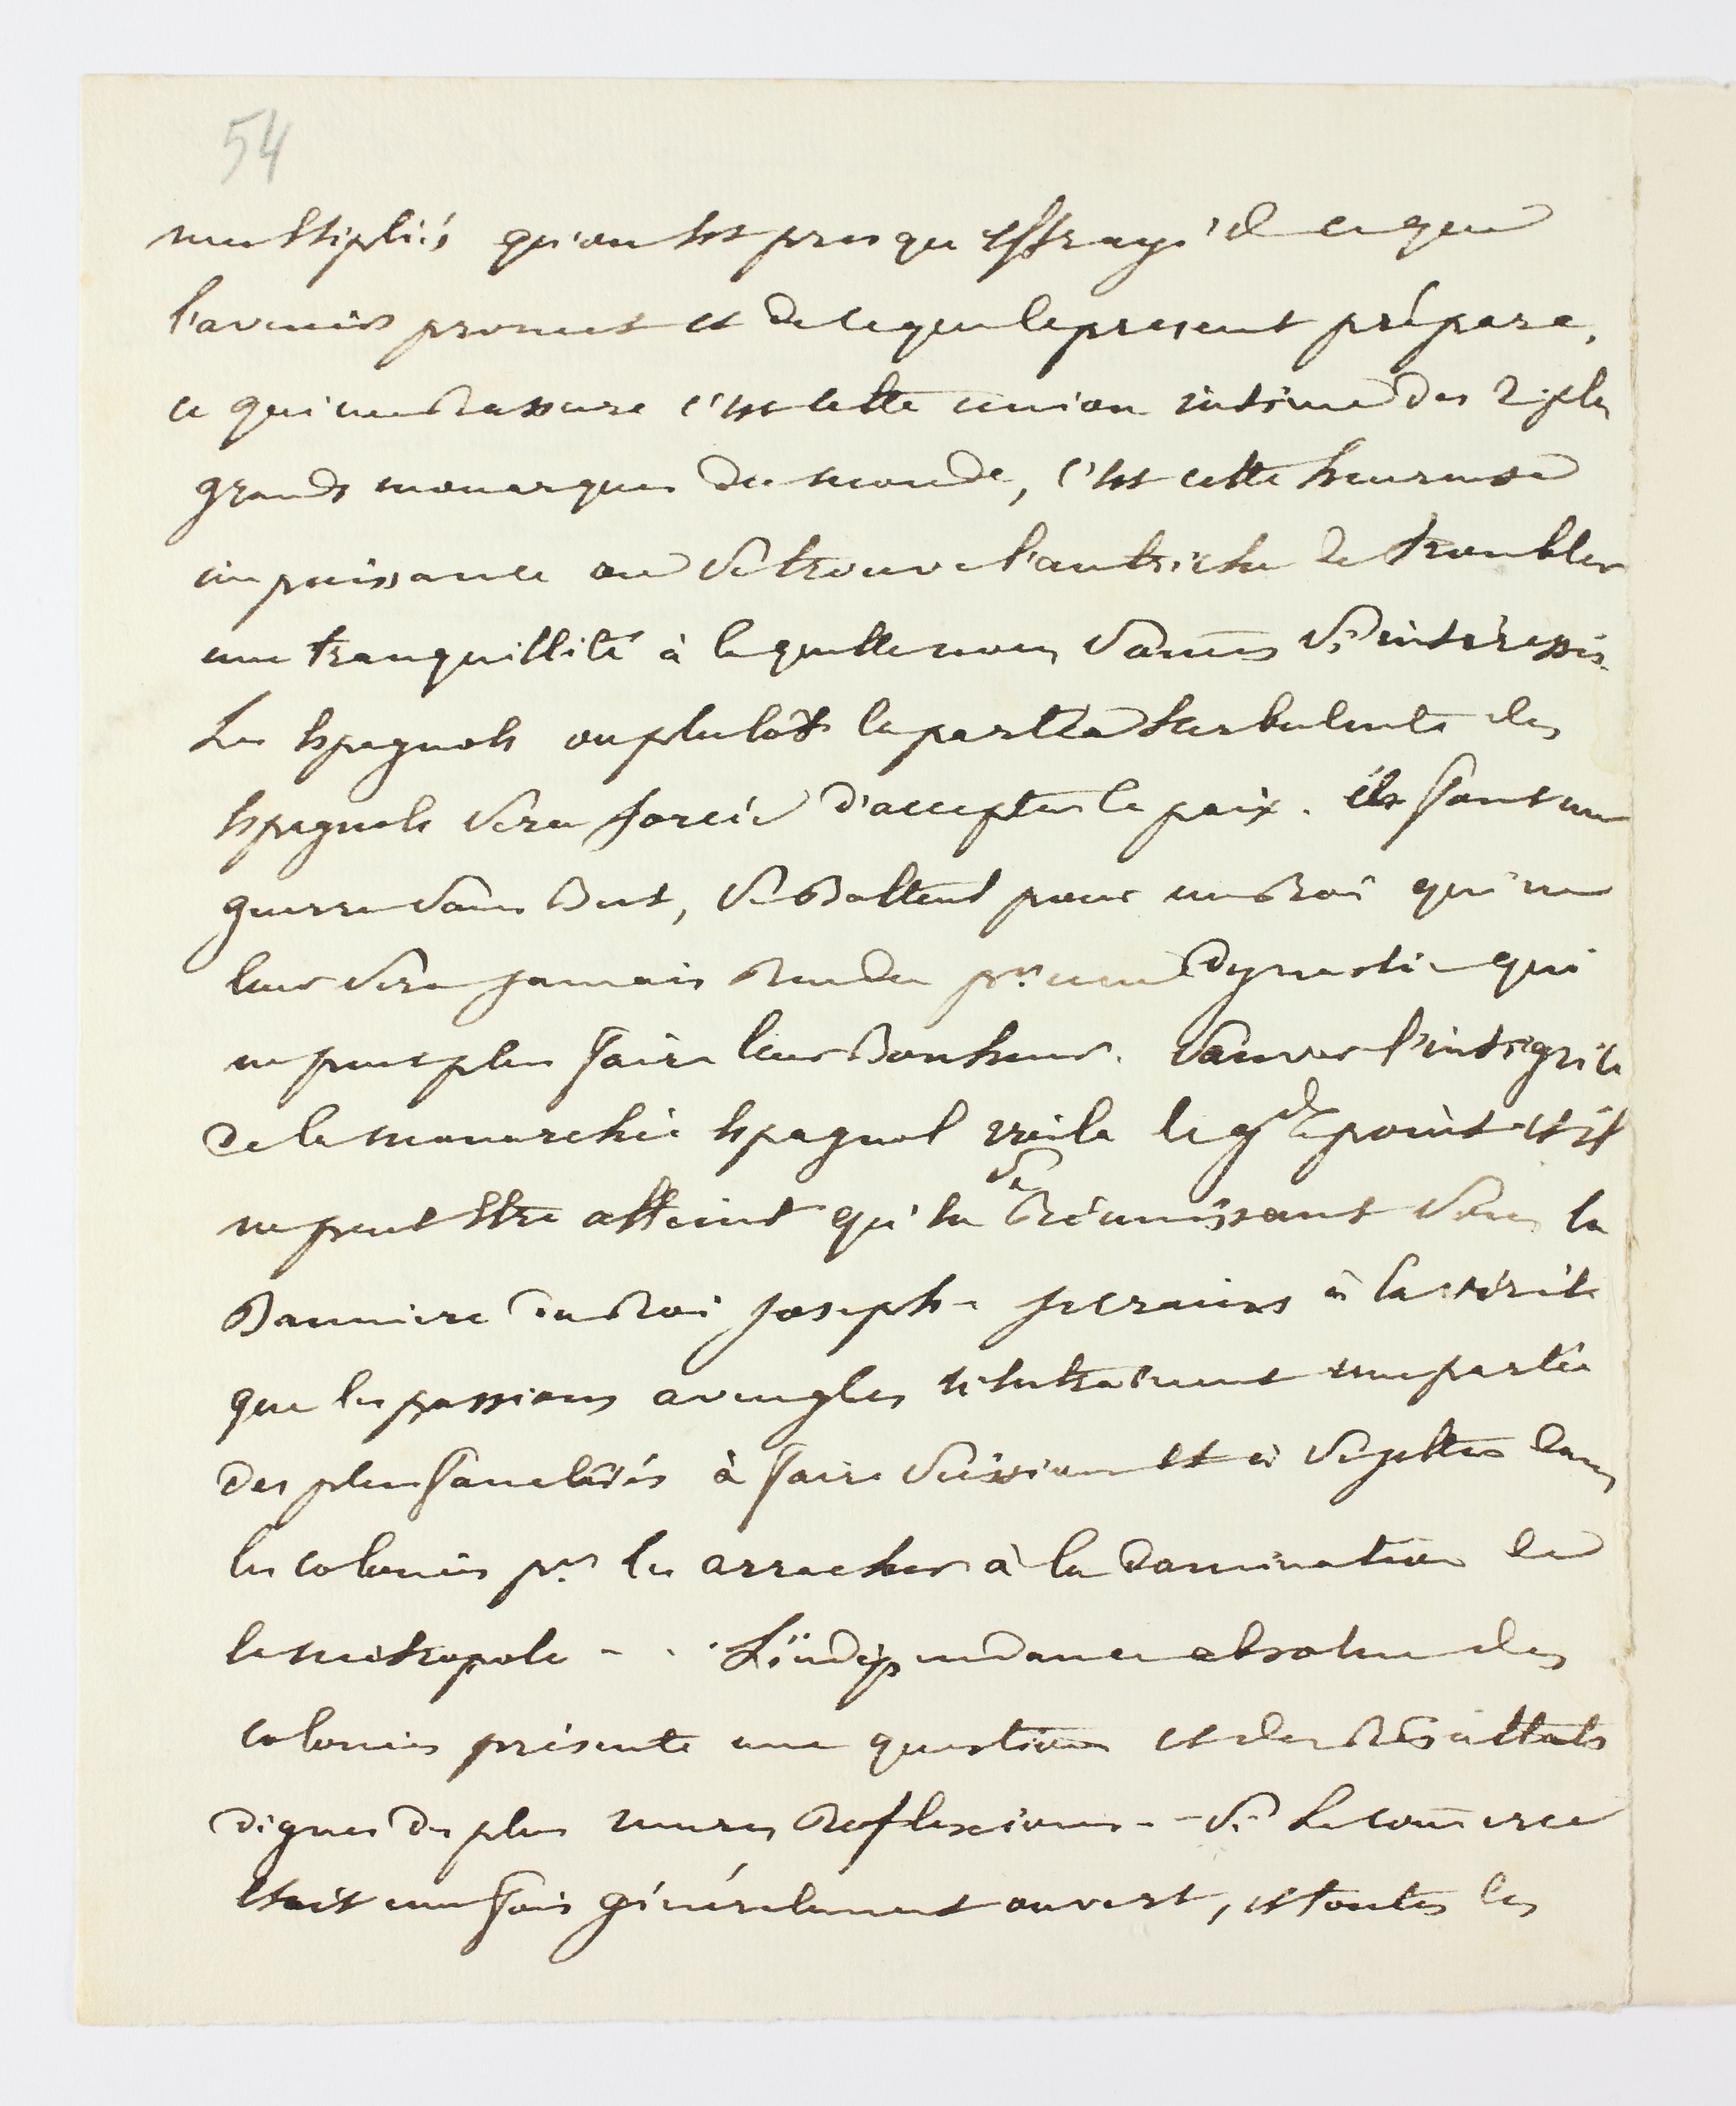 54
multipliés qu'on est presque effrayé de ce que
l'avenir promet et de ce que le present prépare,
ce qui me Rassure c'est cette union intime des 2 plus
grands monarques du monde, c'est cette heureuse
impuissance ou se trouve l'autriche de troubler
une tranquillité à laquelle nous somes si intéressés.
Les Espagnols ou plutôt la partie turbulente des
Espagnols sera forcée d'accepter la paix. ils font une
guerre sans But, se Battent pour un Roi qui ne
leur sera jamais Rendu pr. une Dynastie qui
ne peut plus faire leur Bonheur. sauver l'intégrité
de la monarchie Espagnol voila le gd point et il
ne peut Etre atteint qu'en se Réunissant sous la
Banniere du Roi Joseph - je crains à la vérité
que les passions aveugles n'entrainent une partie
des plus fanatisés à faire scission et à se jetter dans
les colonies pr. les arracher à la domination de
la métropole - . . L'indépendance absolue des
colonies présente une question et des Résultats
dignes des plus mures Reflexions - - si Le comerce
était une fois généralement ouvert, et toutes les